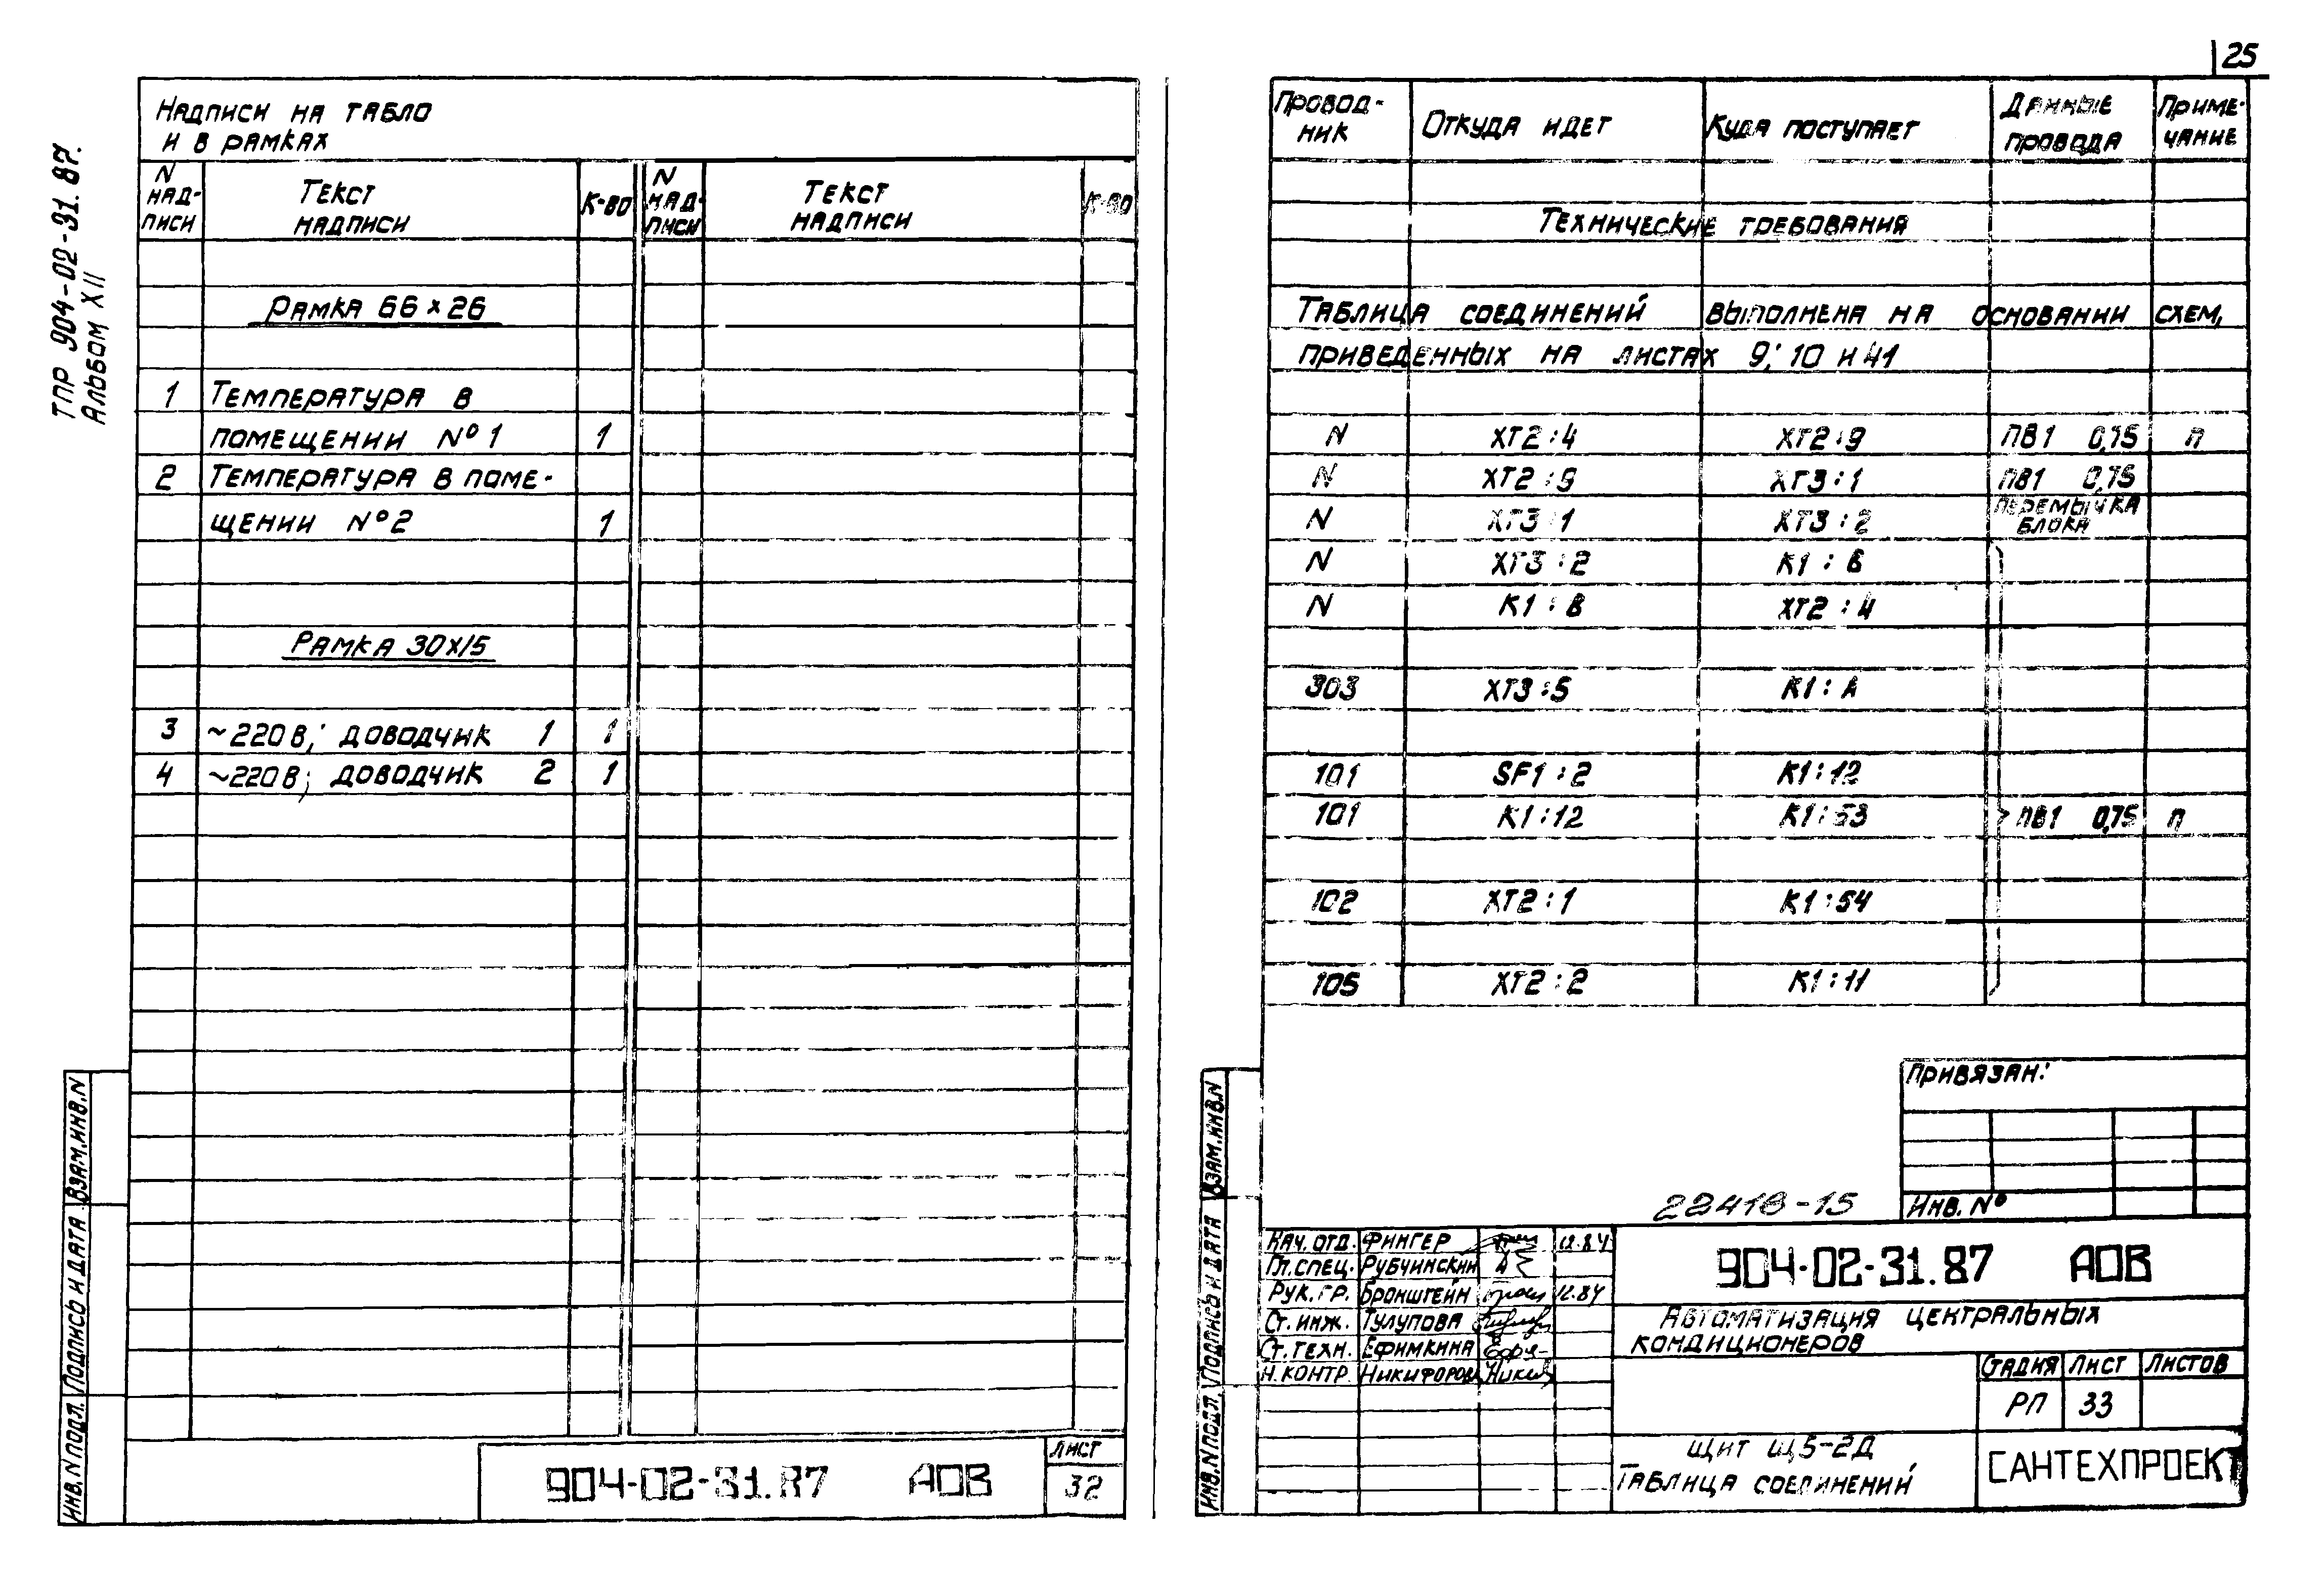 25
ТПР 904-02-31.87.
Альбом XII
Надписи на табло
и в рамках
N надписи Текст надписи К-во N надписи Текст надписи К-во
Рамка 66×26
1 Температура в
помещении №1 1
2 Температура в поме-
щении №2 1
Рамка 30×15
3 ~220В; доводчик 1 1
4 ~220В; доводчик 2 1
Инв.N подл. Подпись и дата Взам.инв.N
904-02-31.87 АОВ
Лист
32
Провод-ник Откуда идет Куда поступает Данные провода Приме-чание
Технические требования
Таблица соединений выполнена на основании схем,
приведенных на листах 9; 10 и 41
N ХТ2:4 ХТ2:9 ПВ1 0,75 п
N ХТ2:9 ХТ3:1 ПВ1 0,75
N ХТ3:1 ХТ3:2 перемычка блока
N ХТ3:2 К1:В
N К1:В ХТ2:4
303 ХТ3:5 К1:А
101 SF1:2 К1:12
101 К1:12 К1:53 ПВ1 0,75 п
102 ХТ2:1 К1:54
105 ХТ2:2 К1:11
Привязан:
Инв. №
22418-15
Инв.N подл. Подпись и дата Взам.инв.N
Нач. отд. Фингер 12.84
Гл. спец. Рубчинский
Рук. гр. Бронштейн 12.84
Ст. инж. Тулупова
Ст. техн. Ефимкина
Н. контр. Никифоров
904-02-31.87 АОВ
Автоматизация центральных
кондиционеров
Стадия Лист Листов
РП 33
Щит Щ5-2Д
Таблица соединений
САНТЕХПРОЕКТ